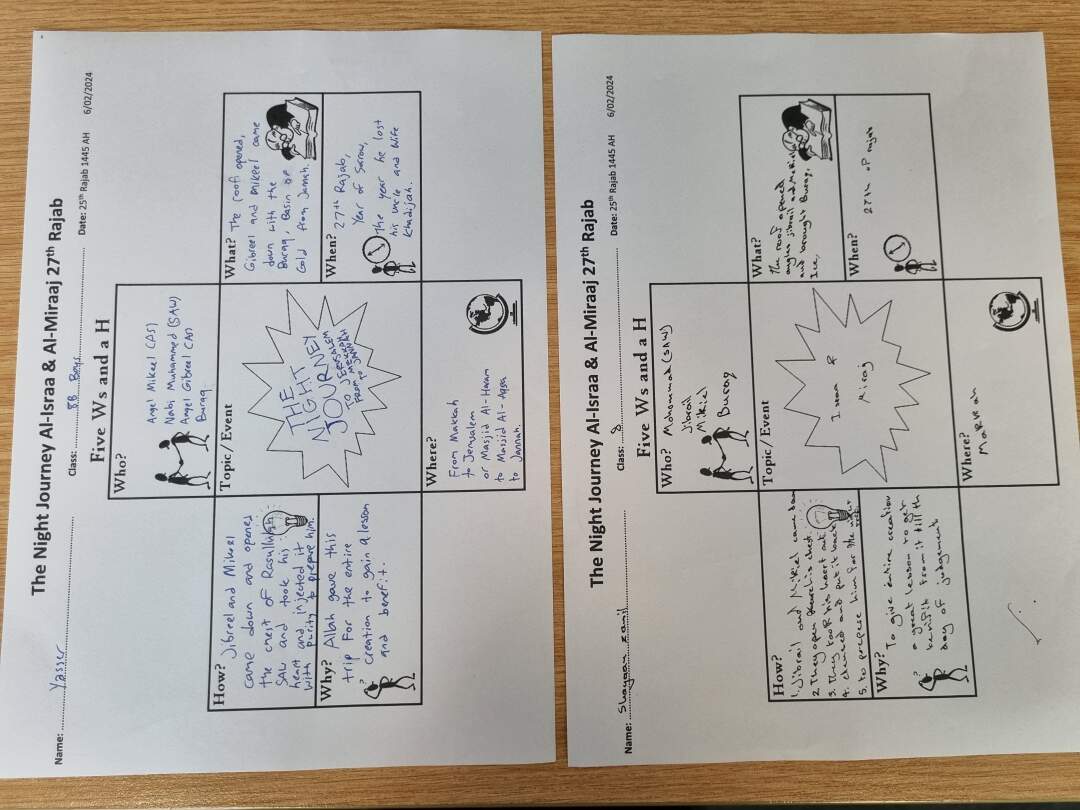 The Night Journey Al-Israa & Al-Miraaj 27th Rajab
Name: Yasser Class: 8B Boys Date: 25th Rajab 1445 AH 6/02/2024
Five Ws and a H
Who?
Angel Mikeel (AS)
Nabi Muhammed (SAW)
Angel Gibreel (AS)
Buraq.
How? Jibreel and Mikeel
came down and opened
the chest of Rasullullah
SAW and took his
heart and injected it
with purity to prepare him.
Topic/Event
THE
NIGHT
JOURNEY
What? The roof opened,
Gibreel and Mikeel came
down with the
Buraq, Basin of
Gold from Jannah.
Why? Allah gave this
trip for the entire
creation to gain a lesson
and benefit.
When?
27th Rajab,
Year of Sorrow,
The year he lost
his uncle and wife
Khadijah.
Where?
From Makkah
to Jerusalem
or Masjid Al-Haram
to Masjid Al-Aqsa
to Jannah.
The Night Journey Al-Israa & Al-Miraaj 27th Rajab
Name: Class: 8 Date: 25th Rajab 1445 AH 6/02/2024
Five Ws and a H
Who? Mohommad (SAW)
Jibrail
Mikiel
Buraq
How?
1. Jibrail and Mikiel came down
2. They open his chest
3. They took his heart out
4. cleansed and put it back
5. to prepare him for the
Topic/Event
Israa &
Miraj
What?
The roof opened
angles Jibrail and
and brought Buraq.
Why?
To give entire creation
a great lesson to get
benifit from it till th
day of judgement
When?
27th of rajab
Where?
Makkah